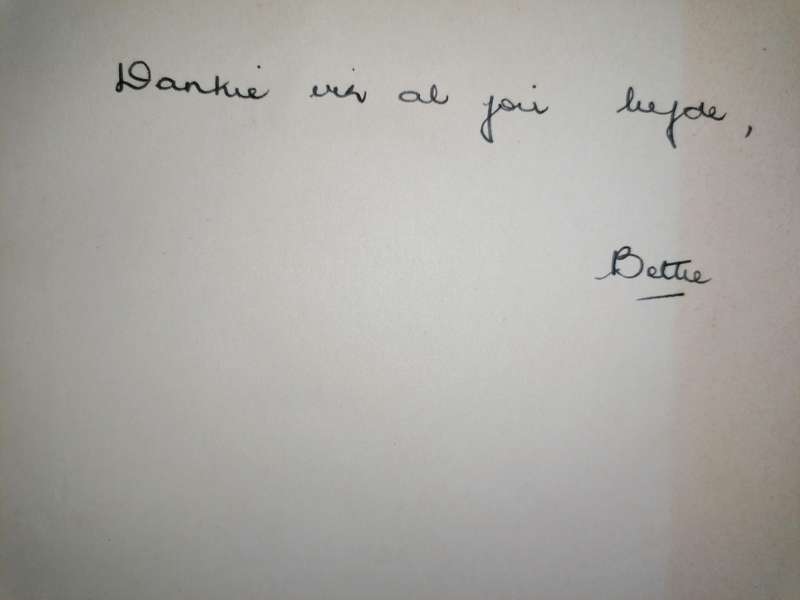 Dankie vir al jou liefde,
Bettie